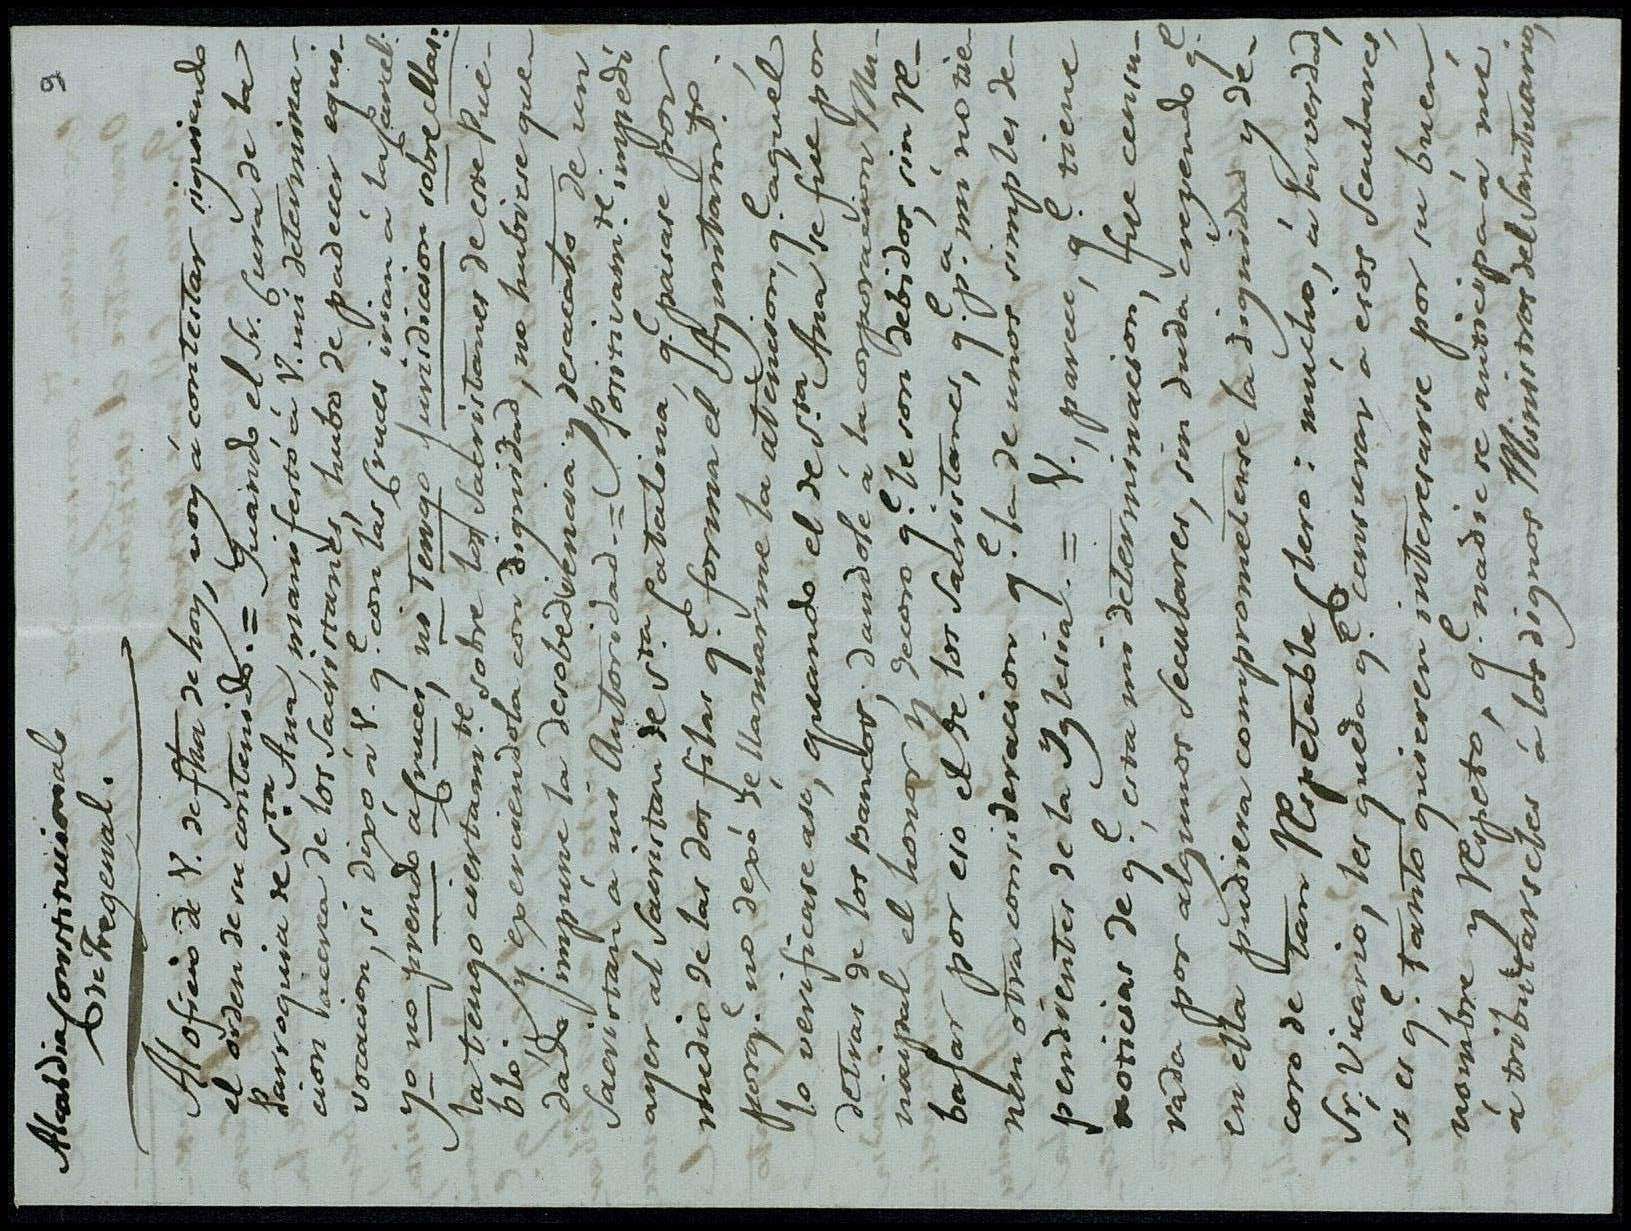 9
Alcaldia Constitucional
de Fregenal.
Al oficio de V. de fha de hoy, voy á contestar siguiendo
el orden de su contenido. = Quando el Sr. Cura de la
Parroquia de Sta. Ana, manifestó á V. mi determina-
cion acerca de los Sacristanes, hubo de padecer equi-
vocacion, si dixo á V. q.e con las Cruces irian á la carcel.
yo no prendo á Cruces, ni tengo jurisdiccion sobre ellas:
la tengo ciertam.te sobre los Sacristanes de este Pue-
blo, y exerciendola con dignidad, no hubiese que-
dado impune la desobediencia y desacato de un
Sacristan a mi Autoridad = Positivam.te impedí
ayer al Sacristan de Sta. Catalina, q.e pasase por
medio de las dos filas q.e forma el Ayuntam.to
porq.e no dexó de llamarme la atencion, q.e aquel
lo verificase asi, quando el de Sta. Ana se fue por
detras de los bancos, dandole á la corporacion Mu-
nicipal el honor y decoro q.e le son debidos, sin re-
bajar por eso el de los Sacristanes, q.e p.a mi no tie-
nen otra consideracion q.e la de unos simples de-
pendientes de la Yglesia. = V., parece, q.e tiene
noticias de q.e esta mi determinacion, fue censu-
rada por algunos Seculares, sin duda creyendo q.e
en ella pudiera comprometerse la dignidad y de-
coro de tan Respetable Clero: mucho, á la verdad,
Sr. Vicario, les queda q.e censurar a esos Seculares,
si es q.e tanto quieren interesarse por su buen
nombre y Respeto, q.e nadie se anticipará á mi
á tributarseles á los dignos Ministros del Santuario,